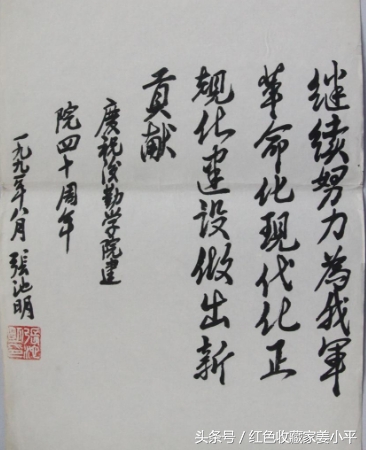 继续努力為我軍
革命化现代化正
規化建设做出新
貢献
慶祝後勤学院建
院四十周年
一九九二年八月 張池明
头条号/红色收藏家姜小平